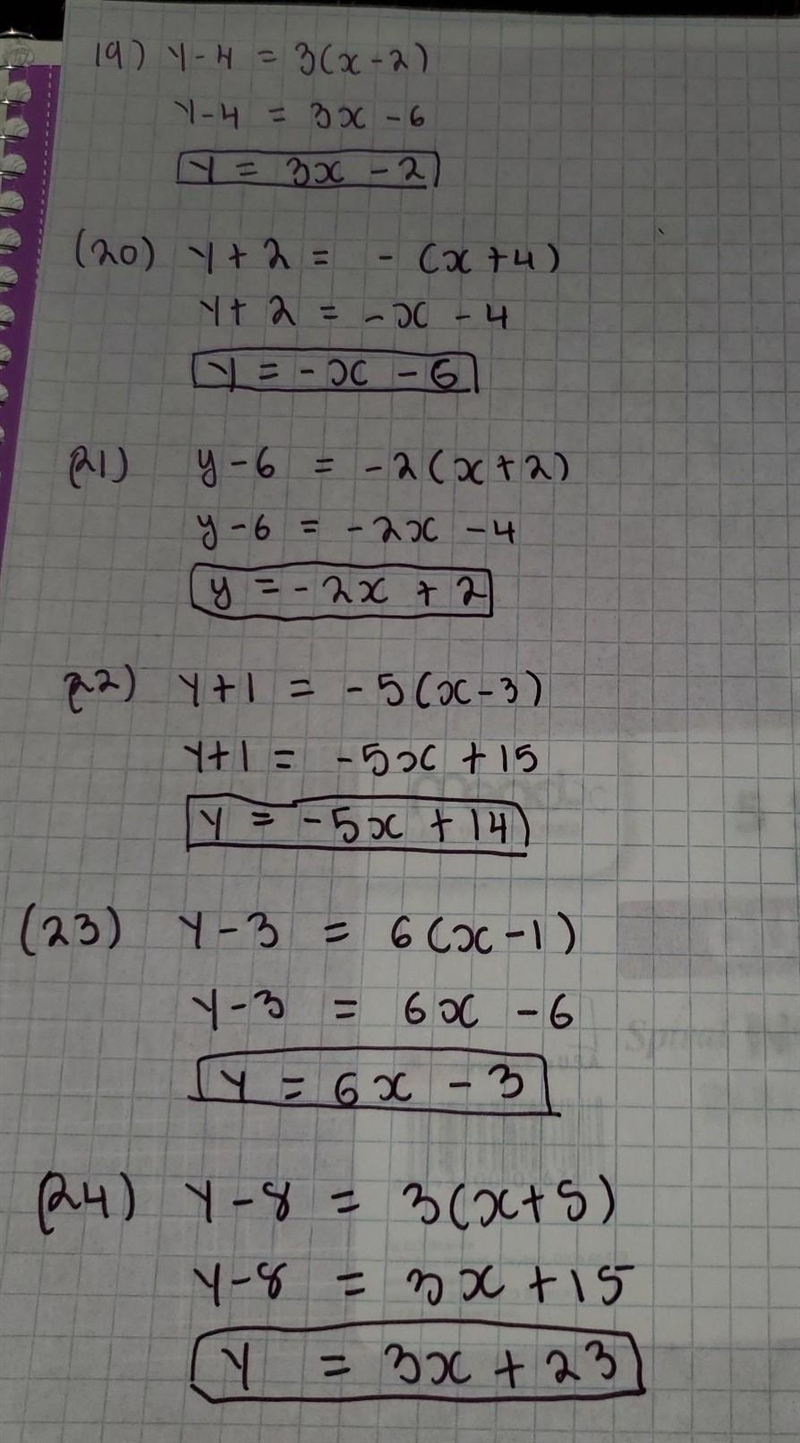 19) y-4 = 3(x-2)
y-4 = 3x - 6
y = 3x - 2
(20) y + 2 = - (x+4)
y + 2 = -x - 4
y = -x - 6
(21) y - 6 = -2(x+2)
y - 6 = -2x - 4
y = -2x + 2
(22) y+1 = -5(x-3)
y+1 = -5x + 15
y = -5x + 14
(23) y - 3 = 6(x-1)
y - 3 = 6x - 6
y = 6x - 3
(24) y - 8 = 3(x+5)
y - 8 = 3x + 15
y = 3x + 23